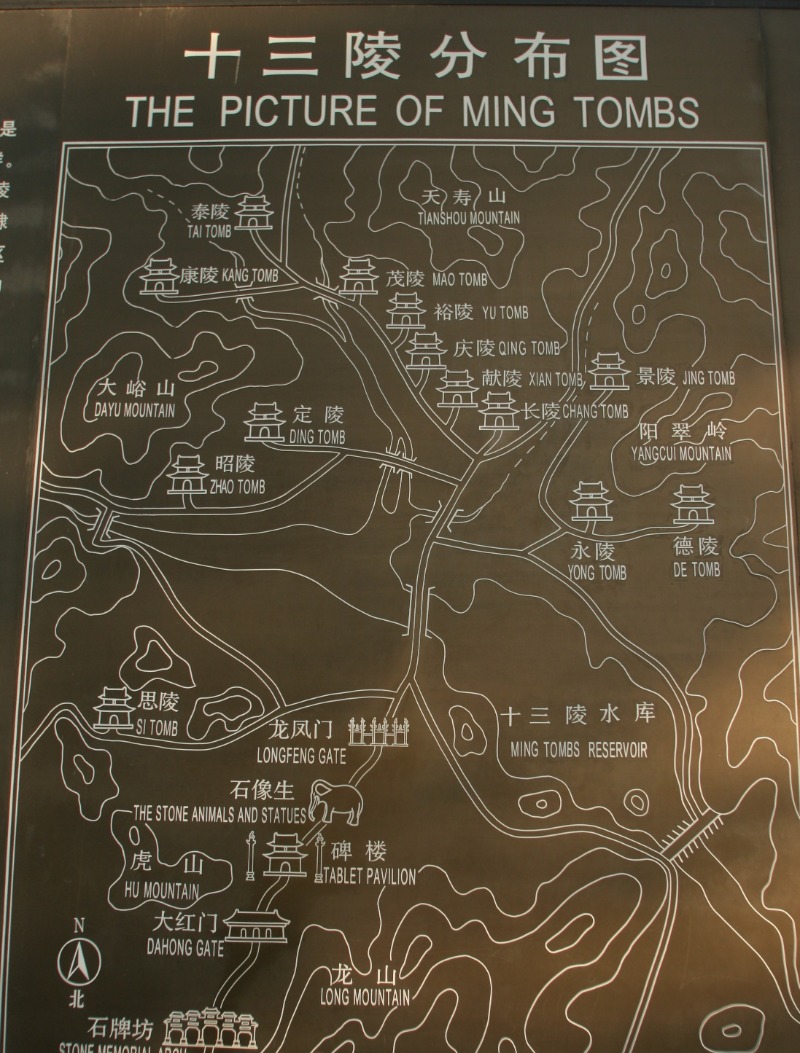 十三陵分布图
THE PICTURE OF MING TOMBS
是
陵
天寿山
TIANSHOU MOUNTAIN
泰陵
TAI TOMB
康陵 KANG TOMB
茂陵 MAO TOMB
裕陵 YU TOMB
庆陵 QING TOMB
献陵 XIAN TOMB
景陵 JING TOMB
大峪山
DAYU MOUNTAIN
长陵 CHANG TOMB
定陵
DING TOMB
阳翠岭
YANGCUI MOUNTAIN
昭陵
ZHAO TOMB
永陵
YONG TOMB
德陵
DE TOMB
思陵
SI TOMB
龙凤门
LONGFENG GATE
十三陵水库
MING TOMBS RESERVOIR
石像生
THE STONE ANIMALS AND STATUES
碑楼
TABLET PAVILION
虎山
HU MOUNTAIN
大红门
DAHONG GATE
N
北
龙山
LONG MOUNTAIN
石牌坊
STONE MEMORIAL ARCH